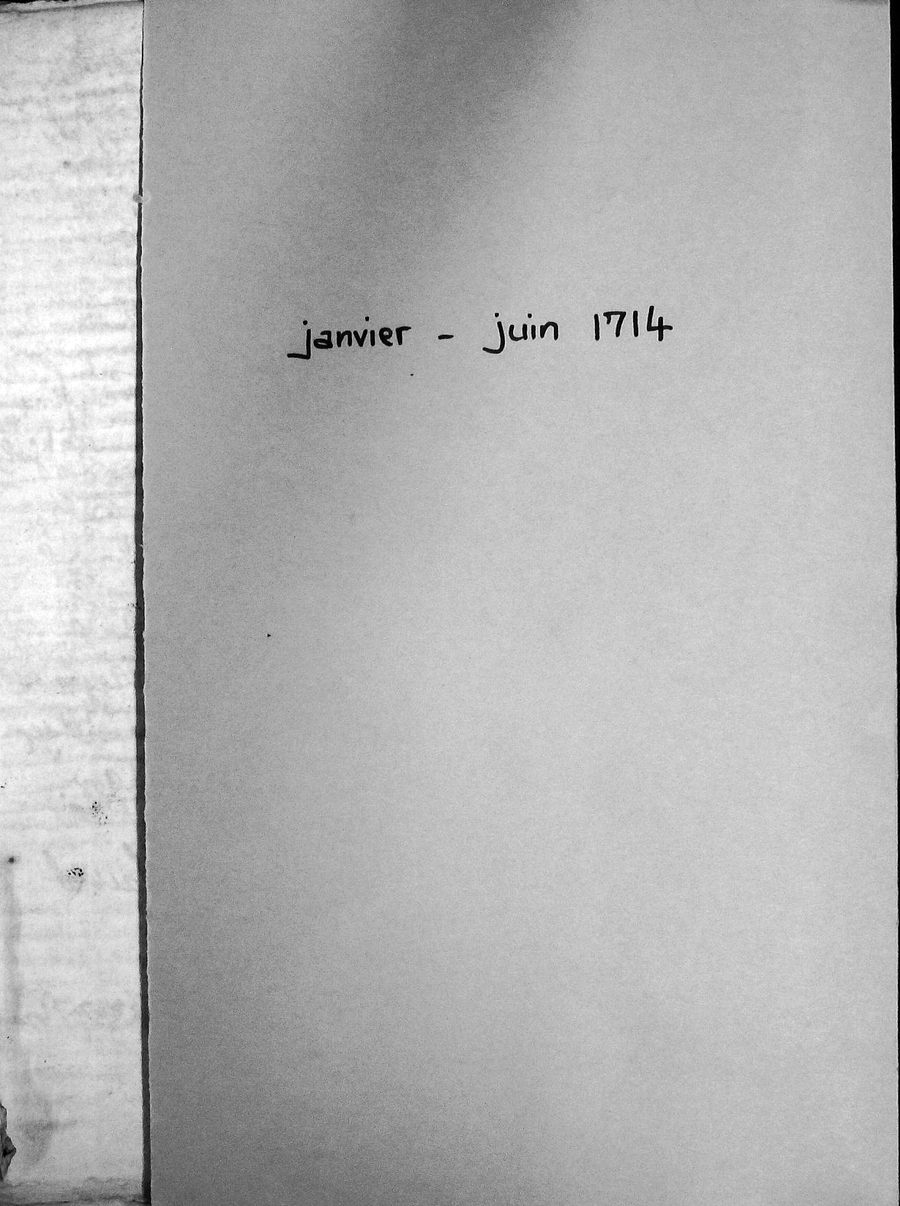 janvier - juin 1714